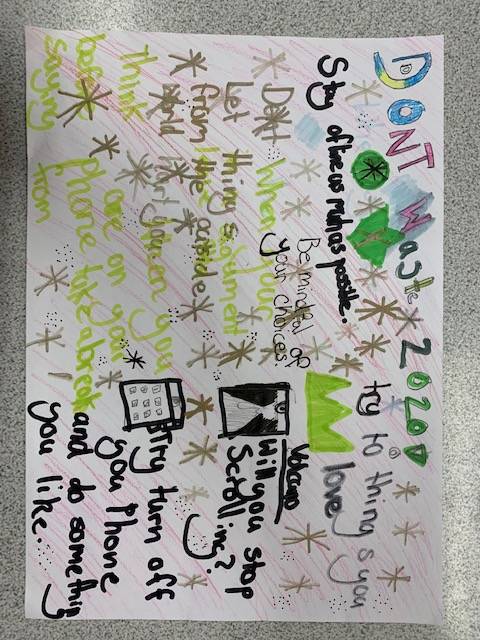 DONT
Stay ofline us much as possible.
try to thing s you
love
Be mindful of
your choices!
Dont
Let thing s
from the outside
World hurt you
Think
before
saying
When you
are on your
phone take a break
from
Volcano
Will you stop
Scrolling?
Try turn off
you Phone
and do something
you like.